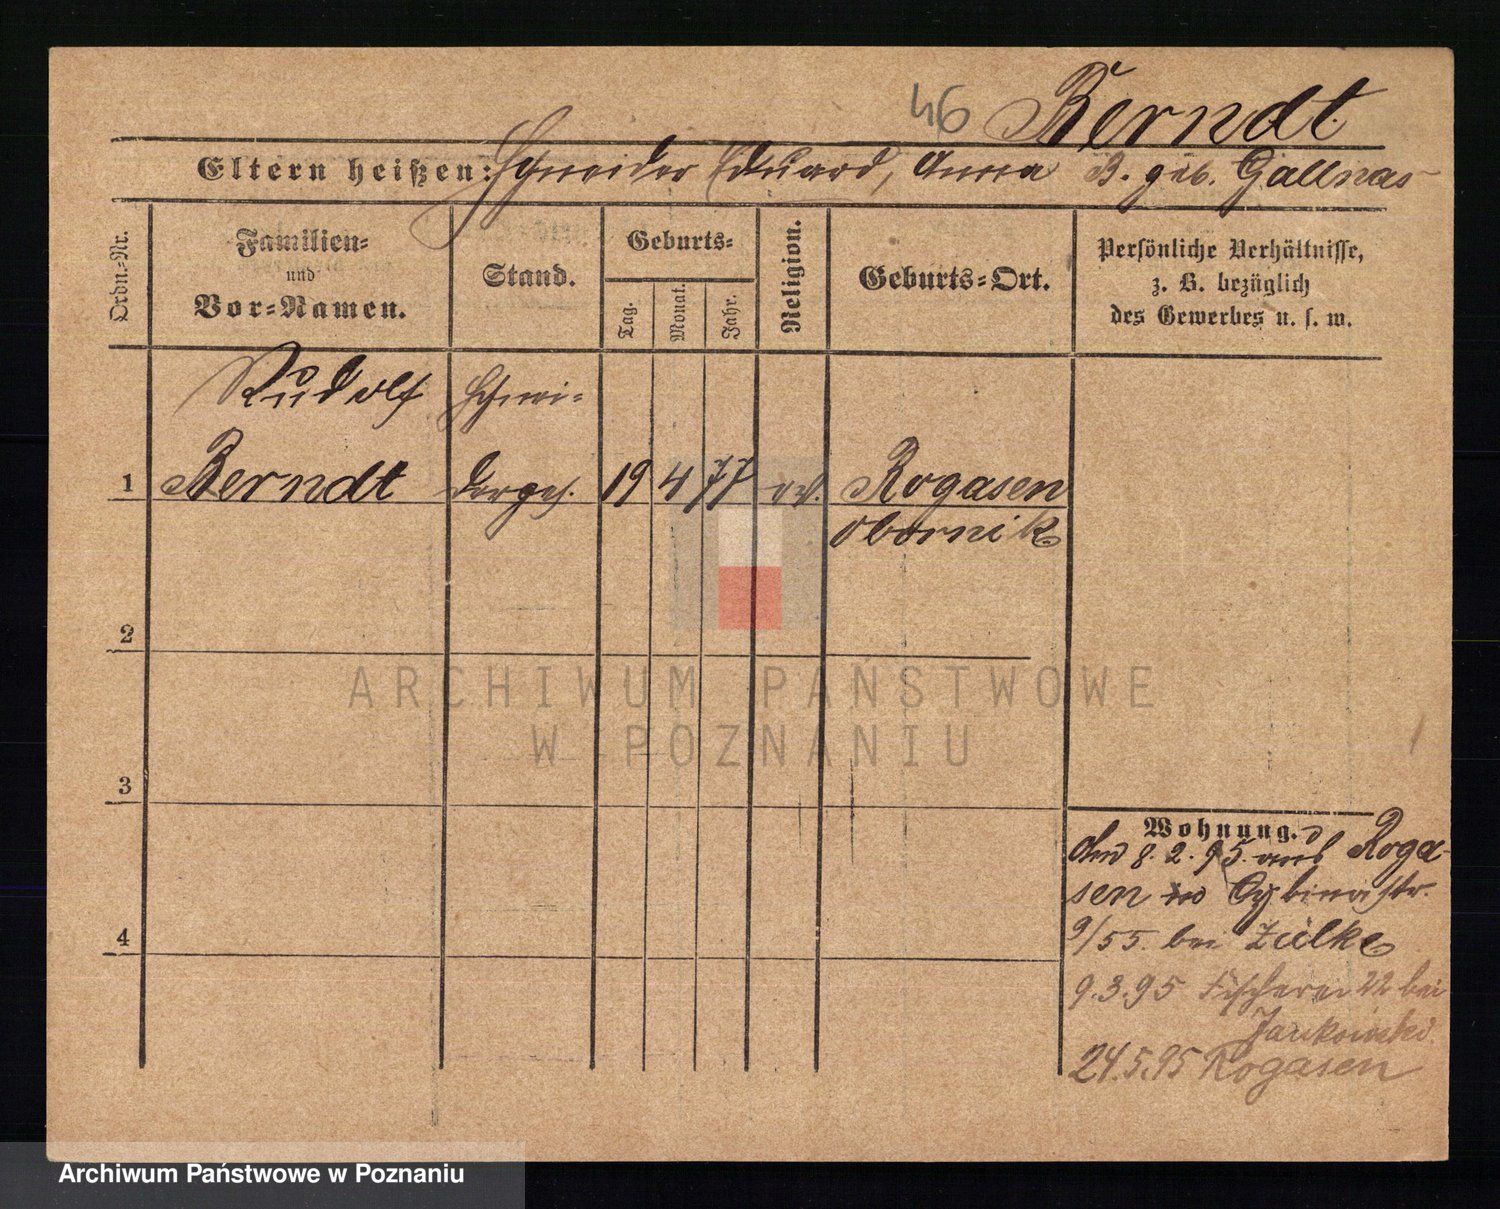 46 Berndt.
Eltern heißen: Schneider Eduard, Anna B. geb. Gallnas
Ordn.-Nr.
Familien-
und
Vor-Namen.
Stand.
Geburts-
Tag.
Monat.
Jahr.
Religion.
Geburts-Ort.
Persönliche Verhältnisse,
z. B. bezüglich
des Gewerbes u. s. w.
Rudolf Schnei-
1 Berndt derges. 19 4 77 ev. Rogasen
Obornik
2
3
4
Wohnung.
den 8. 2. 95. aus Roga-
sen Cybinastr.
9/55. bei Zülke
9.3.95 Fischerei 22 bei
24.5.95 Rogasen
ARCHIWUM PAŃSTWOWE
W POZNANIU
Archiwum Państwowe w Poznaniu